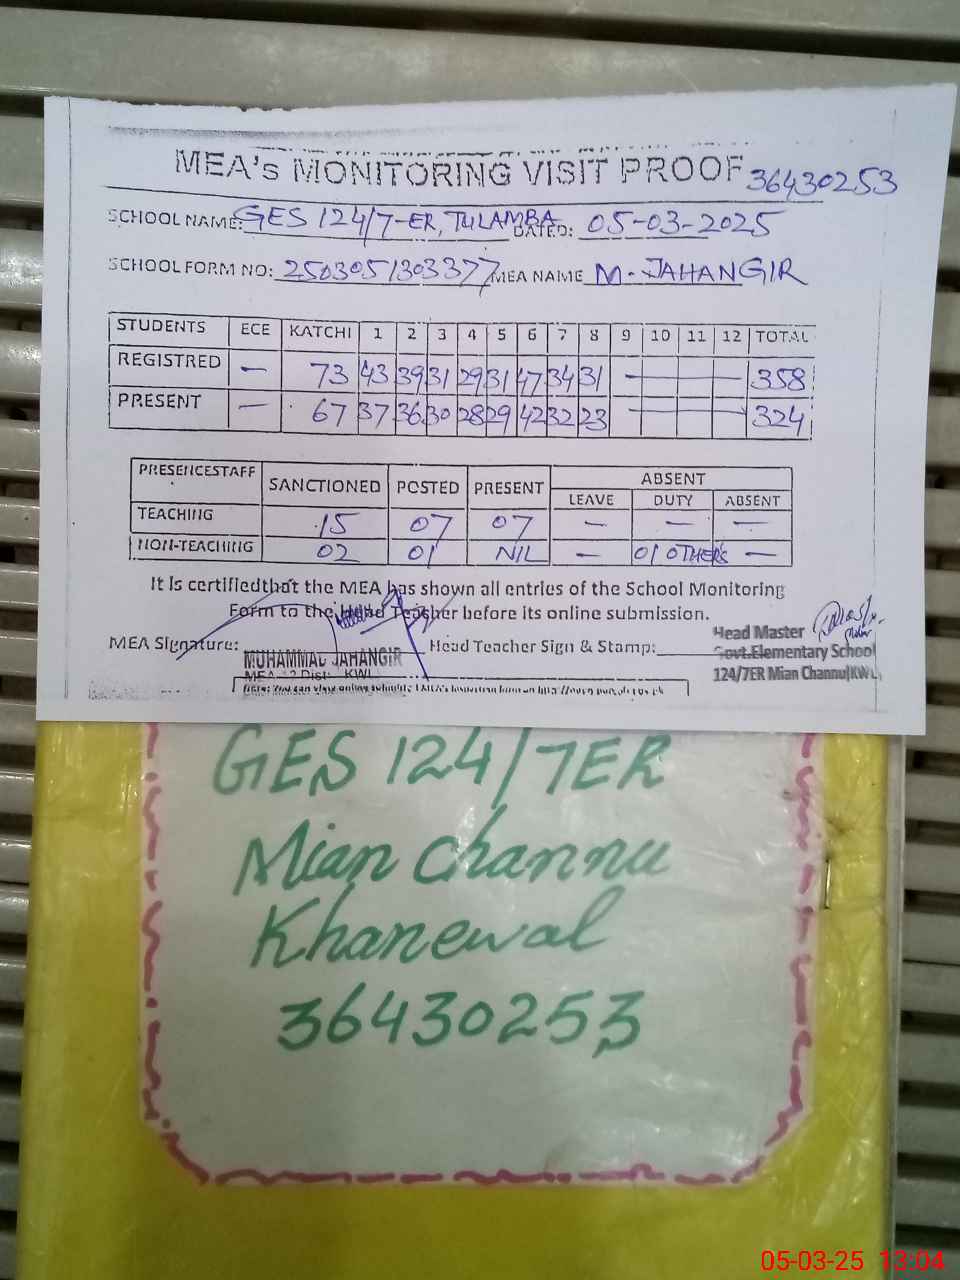 MEA's MONITORING VISIT PROOF 36430253
SCHOOL NAME: GES 124/7-ER, TULAMBA DATED: 05-03-2025
SCHOOL FORM NO: 2503051303377 MEA NAME M. JAHANGIR
STUDENTS ECE KATCHI 1 2 3 4 5 6 7 8 9 10 11 12 TOTAL
REGISTRED — 73 43 39 31 29 31 47 34 31 — 358
PRESENT — 67 37 36 30 28 29 42 32 23 — 324
PRESENCESTAFF SANCTIONED POSTED PRESENT ABSENT
LEAVE DUTY ABSENT
TEACHING 15 07 07 — — —
NON-TEACHING 02 01 NIL — 01 OTHERS —
It is certifiedthat the MEA has shown all entries of the School Monitoring
Form to the Head Teacher before its online submission.
MEA Signature: Head Teacher Sign & Stamp:
MUHAMMAD JAHANGIR
MEA-12 Dist: KWL
Head Master
Govt.Elementary School
124/7ER Mian Channu(KWL)
GES 124/7ER
Mian Channu
Khanewal
36430253
05-03-25 13:04